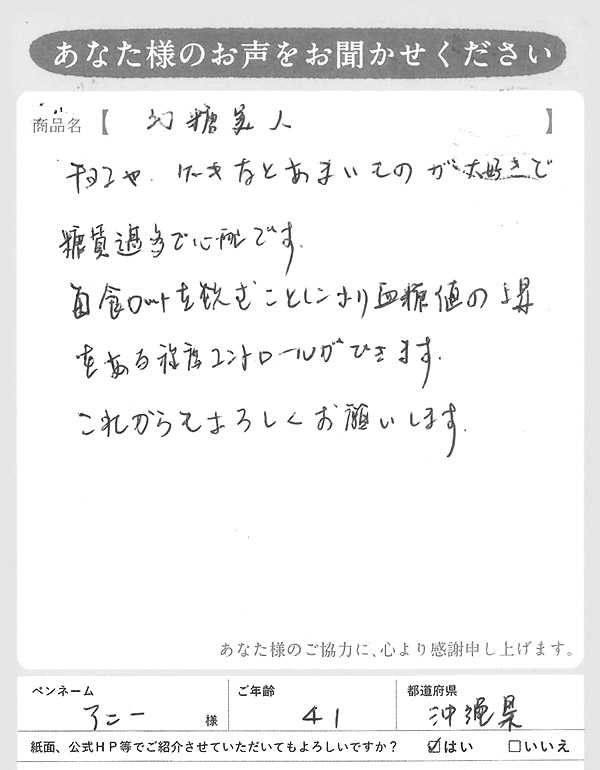 あなた様のお声をお聞かせください
商品名【 幻糖美人 】
チョコや、ケーキなどあまいものが大好きで
糖質過多で心配です。
毎食 を飲む ことで 血糖値の上昇
をある程度コントロールができます。
これからもよろしくお願いします。
あなた様のご協力に、心より感謝申し上げます。
ペンネーム アニー 様
ご年齢 41
都道府県 沖縄県
紙面、公式HP等でご紹介させていただいてもよろしいですか? ☑はい □いいえ